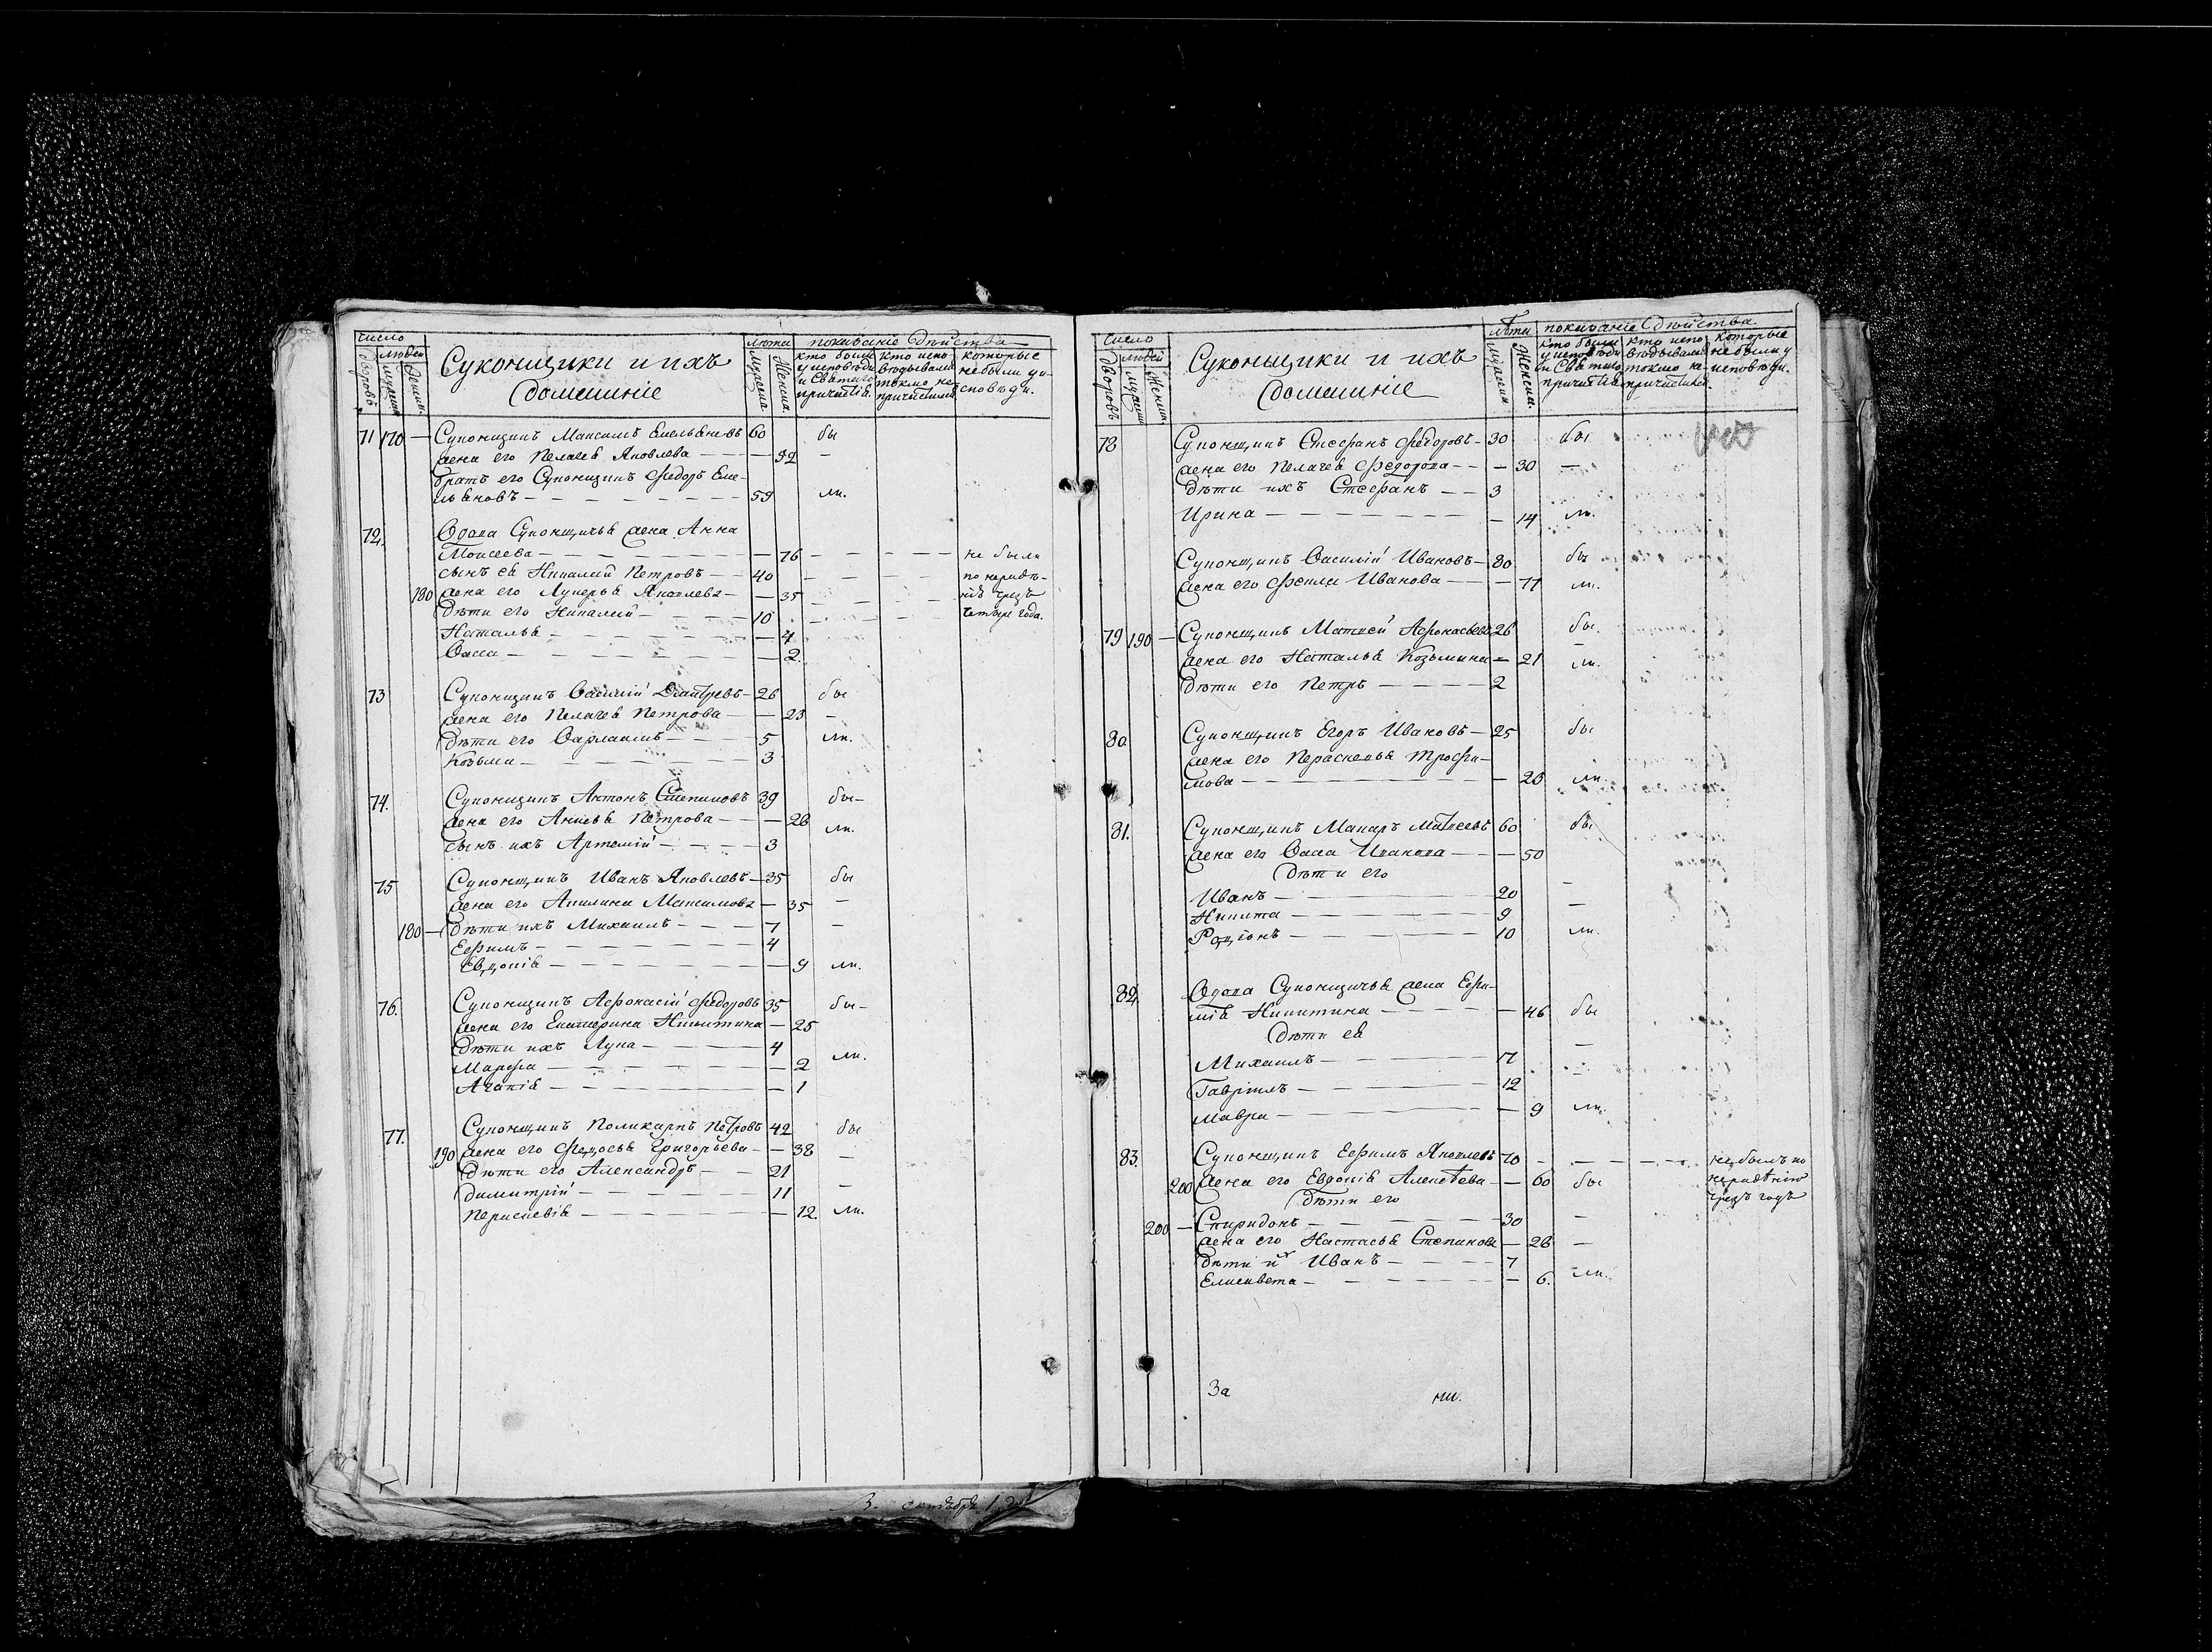 число
людей
дворовъ
мужеска
женска
Суконщики и ихъ
домашніе
лѣта
Мужеска
Женска
показаніе дѣйства
кто были у исповѣди и Святаго причастія.
кто исповѣдывался токмо не причастился
которые не были у исповѣди.
71 170 — Суконщикъ Максимъ Емельяновъ 60 бы
жена его Пелагея Яковлева — — — 32 —
братъ его Суконщикъ Федоръ Еме-
льяновъ — — — — — 59 ли.
72. Вдова Суконщичья жена Анна
Моисеева — — — — — 76 — — — — не были
сынъ ея Николай Петровъ — — 40 — — — по нерадѣ-
180 жена его Лукерья Яковлева — — 35 — — — нію чрезъ
дѣти его Николай — — — 10 — — — четыре года.
Наталья — — — — — 4
Васса — — — — — 2.
73 Суконщикъ Василій Дмитревъ — 26 бы
жена его Пелагея Петрова — — 23 —
дѣти его Варлаамъ — — — 5 ли.
Козьма — — — — — 3
74. Суконщикъ Антонъ Степановъ 39 бы —
жена его Анисья Петрова — — — 26 ли.
сынъ ихъ Артемій — — — — 3
75 Суконщикъ Иванъ Яковлевъ — 35 бы
жена его Акилина Максимова — 35 —
180 — дѣти ихъ Михаилъ — — — 7 —
Ефимъ — — — — — 4
Евдокія — — — — — 9 ли.
76. Суконщикъ Афонасій Федоровъ 35 бы —
жена его Екатерина Никитина — 25
дѣти ихъ Лука — — — — 4 ли.
Марфа — — — — — 2
Агапія — — — — — 1
77. Суконщикъ Поликарпъ Петровъ 42 бы
190 жена его Федосья Григорьева — — 38 —
дѣти его Александръ — — 21
Димитрій — — — — — 11 —
Параскевія — — — — — 12. ли.
3. октября 1
число
людей
дворовъ
мужеска
Женска
Суконщики и ихъ
домашніе
лѣта
мужеска
Женска.
показаніе дѣйства
кто были у исповѣди и Святаго причастія
кто исповѣдывался токмо не причастился.
которые не были у исповѣди.
78 Суконщикъ Стефанъ Федоровъ — 30 бы
жена его Пелагея Федорова — — — 30 —
дѣти ихъ Стефанъ — — 3
Ирина — — — — — 14 ли.
Суконщикъ Василій Ивановъ — 80 бы
жена его Фекла Иванова — — — 71 ли.
79 190 — Суконщикъ Матвей Афонасьевъ 26 бы.
жена его Наталья Козьмина — 21 ли.
дѣти его Петръ — — — — 2
80 Суконщикъ Егоръ Ивановъ — 25 бы
жена его Парасковья Трофи-
мова — — — — — 20 ли.
81. Суконщикъ Макаръ Матвеевъ 60 бы
жена его Васса Иванова — — — 50
дѣти его
Иванъ — — — — 20 —
Никита — — — — 9 —
Родіонъ — — — — 10 ли.
82. Вдова Суконщичья жена Ефи-
мія Никитина — — — — 46 бы
дѣти ея —
Михаилъ — — — — 17 —
Гавріилъ — — — — 12
Мавра — — — — — 9 ли.
83. Суконщикъ Ефимъ Яковлевъ 70 — — — — не былъ по
200 жена его Евдокія Алексѣева — — 60 бы нерадѣнію
дѣти его чрезъ годъ
200 — Спиридонъ — — — — 30 —
жена его Настасья Степанова — 26 —
дѣти их Иванъ — — — 7
Елисавета — — — — — 6. ли.
За